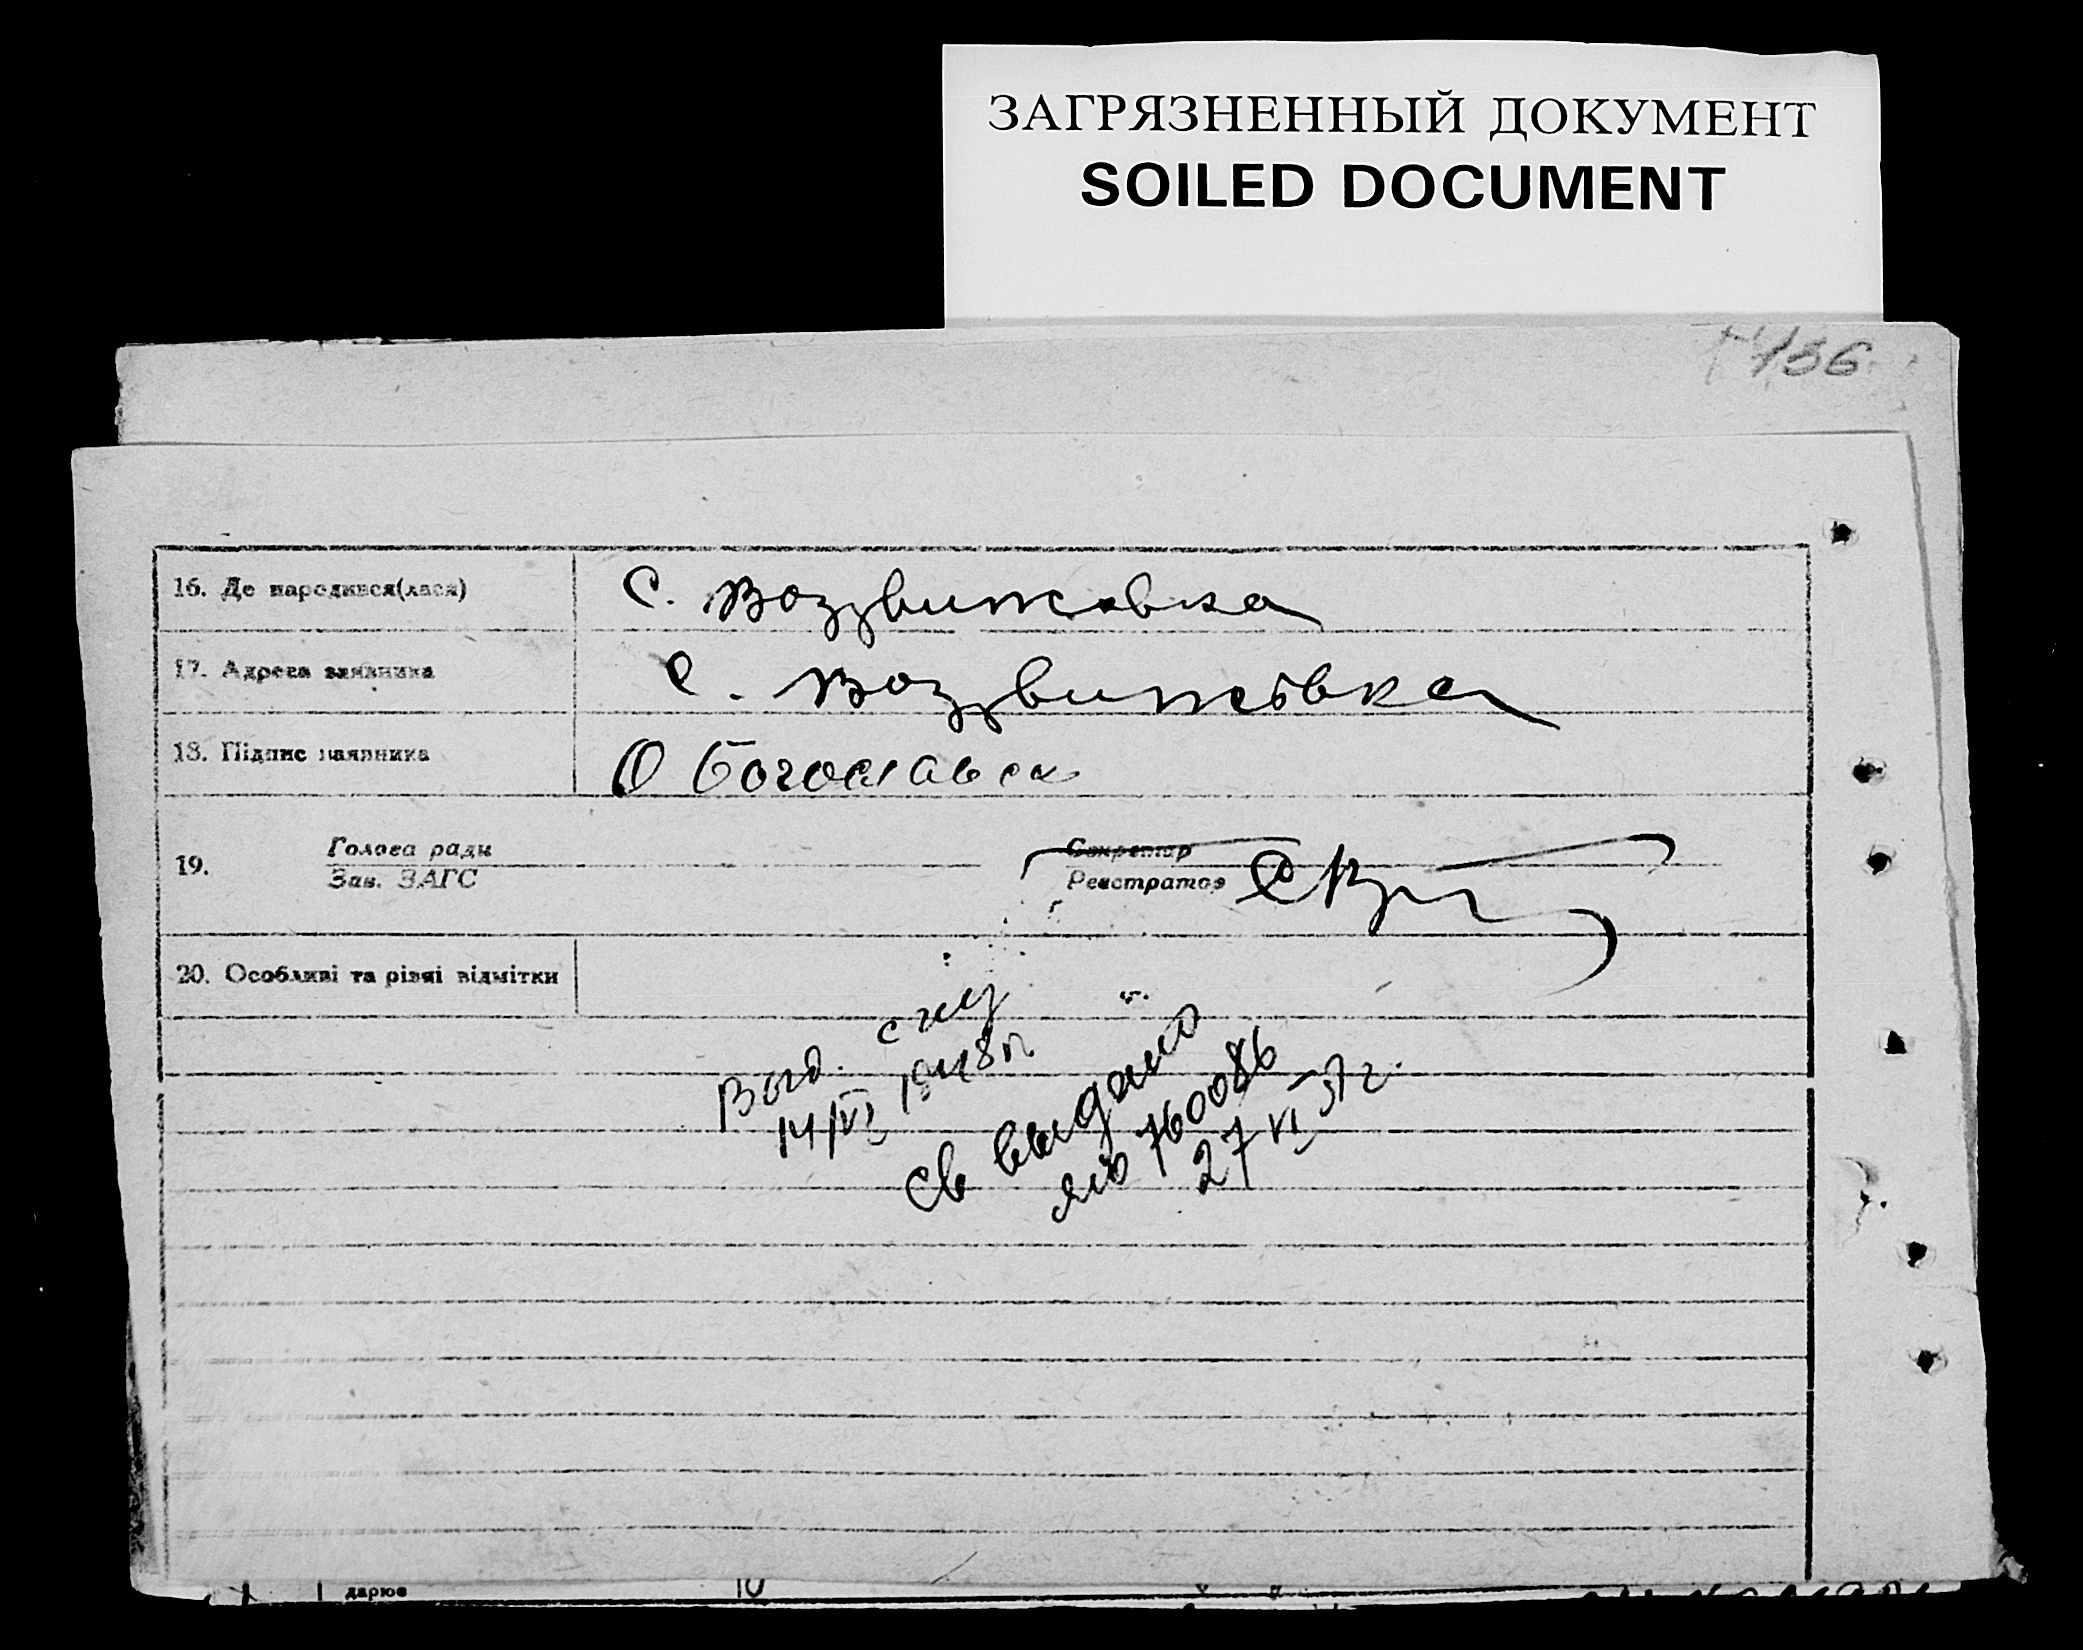 ЗАГРЯЗНЕННЫЙ ДОКУМЕНТ
SOILED DOCUMENT
156
16. Де народився(лася) С. Воздвижовка
17. Адреса заявника С. Воздвижовка
18. Підпис заявника О Богославск
19. Голова ради Секретар
Зав. ЗАГС Реєстратор
20. Особливі та різні відмітки
Выд.
14/VI 1948
св выдано
ЯЮ 760086
27 VI 57 г.
дарює